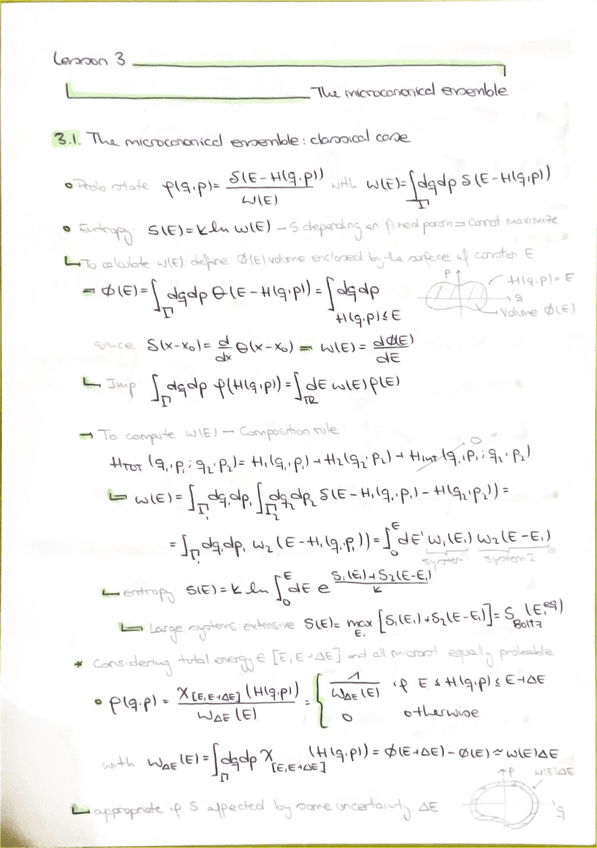 Lesson 3
The microcanonical ensemble
3.1. The microcanonical ensemble: classical case
• Prob. state ρ(q,p) = δ(E-H(q,p)) / ω(E) with ω(E) = ∫_Γ dq dp δ(E-H(q,p))
• Entropy: S(E) = k ln ω(E) → S depending on fixed param ⇒ cannot maximize
↳ To calculate ω(E) define Φ(E) volume enclosed by the surface of constan E
→ Φ(E) = ∫_Γ dq dp Θ(E-H(q,p)) = ∫_{H(q,p)≤E} dq dp
P
H(q,p) = E
q
Volume Φ(E)
since δ(x-x₀) = d/dx Θ(x-x₀) → ω(E) = dΦ(E)/dE
↳ Imp ∫_Γ dq dp f(H(q,p)) = ∫_ℝ dE ω(E) f(E)
→ To compute ω(E) → Composition rule
H_TOT (q₁,p₁; q₂,p₂) = H₁(q₁,p₁) + H₂(q₂,p₂) + H_INT (q₁,p₁; q₂,p₂) 0
↳ ω(E) = ∫_Γ₁ dq₁dp₁ ∫_Γ₂ dq₂dp₂ δ(E-H₁(q₁,p₁) - H(q₂,p₂)) =
= ∫_Γ₁ dq₁dp₁ ω₂(E-H₁(q₁,p₁)) = ∫₀^E dE' ω₁(E₁) ω₂(E-E₁)
system 1 system 2
↳ entropy: S(E) = k ln ∫₀^E dE e^{(S₁(E₁)+S₂(E-E₁))/k}
↳ Large systems: extensive S(E) = max_{E₁} [S₁(E₁) + S₂(E-E₁)] = S_Boltz (E^eq)
* Considering total energy ∈ [E, E+ΔE] and all microst equally probable
• ρ(q,p) = χ_[E,E+ΔE] (H(q,p)) / ω_ΔE (E) = { 1/ω_ΔE(E) if E ≤ H(q,p) ≤ E+ΔE
0 otherwise
with ω_ΔE(E) = ∫_Γ dq dp χ_[E,E+ΔE] (H(q,p)) = Φ(E+ΔE) - Φ(E) ≃ ω(E)ΔE
↳ appropriate if S affected by some uncertainty ΔE
P
ω(E)ΔE
q